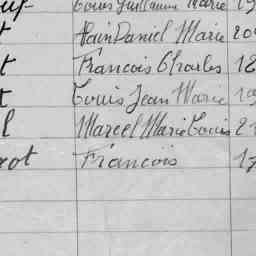 Louis Guillaume Marie 19
t Alain Daniel Marie 20
t Francois Charles 12
t Louis Jean Marie 19
l Marcel Marie Louis 21
rot Francois 17